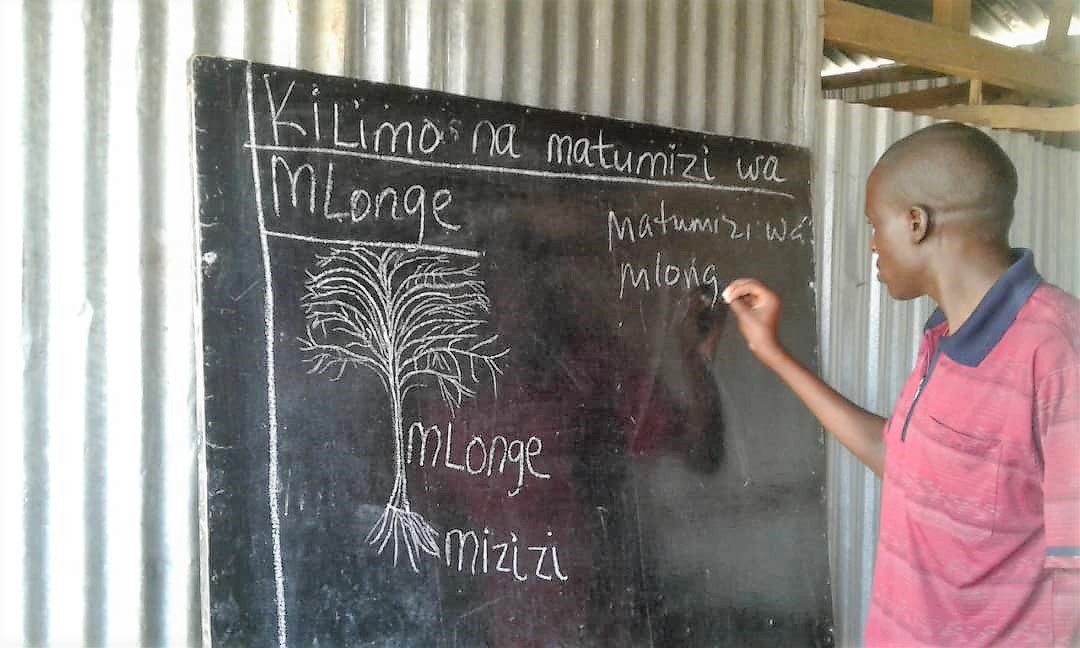 KiLimo na matumizi wa
MLonge
Matumizi wa
mlong
mLonge
mizizi